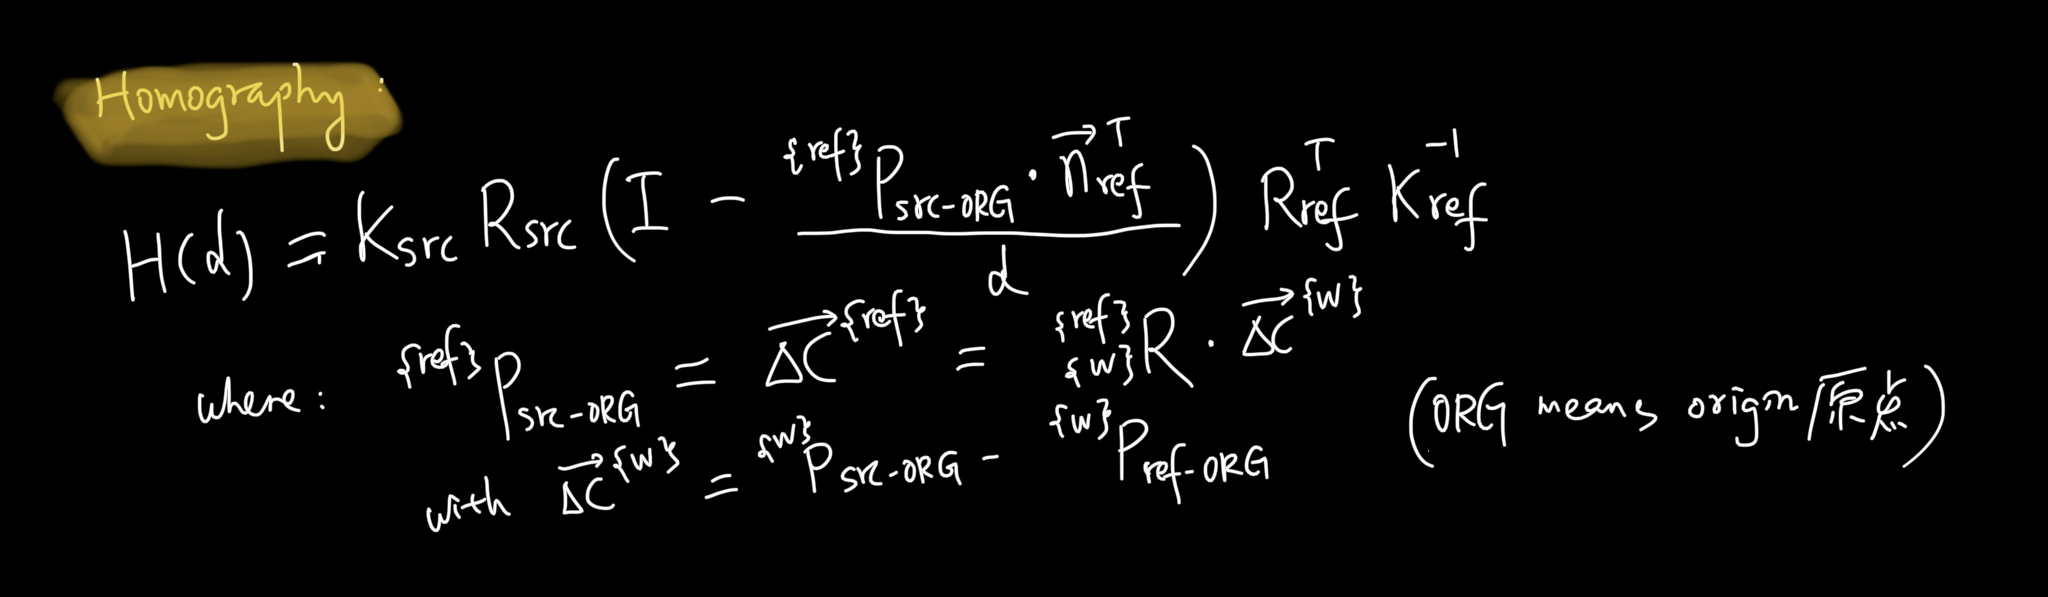 Homography:
H(d) = K_src R_src (I - ^{ref}P_src-ORG · \vec{n}_ref^T / d) R_ref^T K_ref^-1
where: ^{ref}P_src-ORG = \vec{ΔC}^{ref} = ^{ref}_{w}R · \vec{ΔC}^{w}
with \vec{ΔC}^{w} = ^{w}P_src-ORG - ^{w}P_ref-ORG
(ORG means origin/原点)